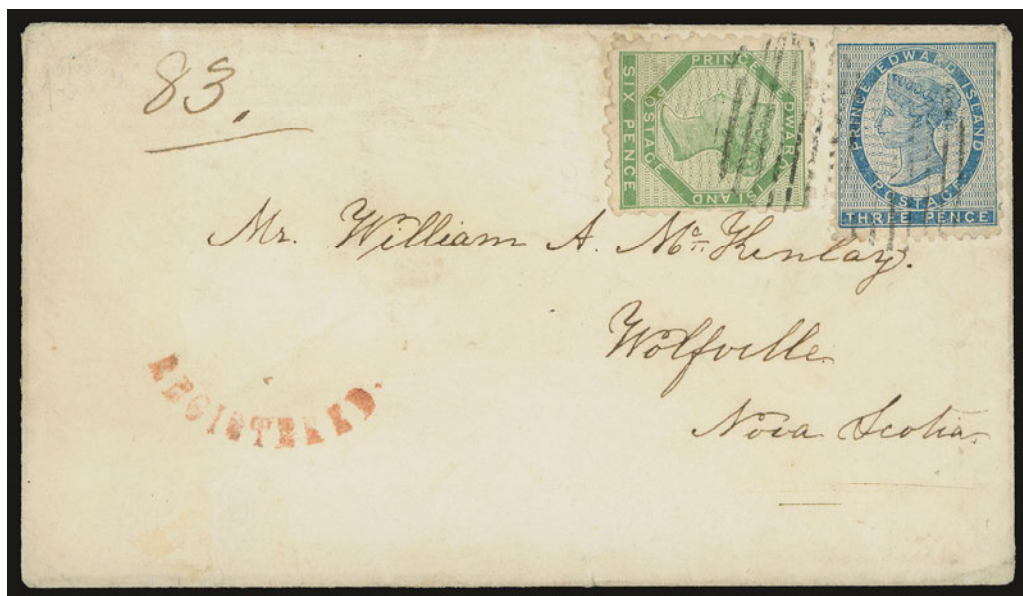 83.
SIX PENCE
PRINCE EDWARD ISLAND
POSTAGE
PRINCE EDWARD ISLAND
POSTAGE
THREE PENCE
Mr. William A. McKinlay.
Wolfville
Nova Scotia
REGISTERED.